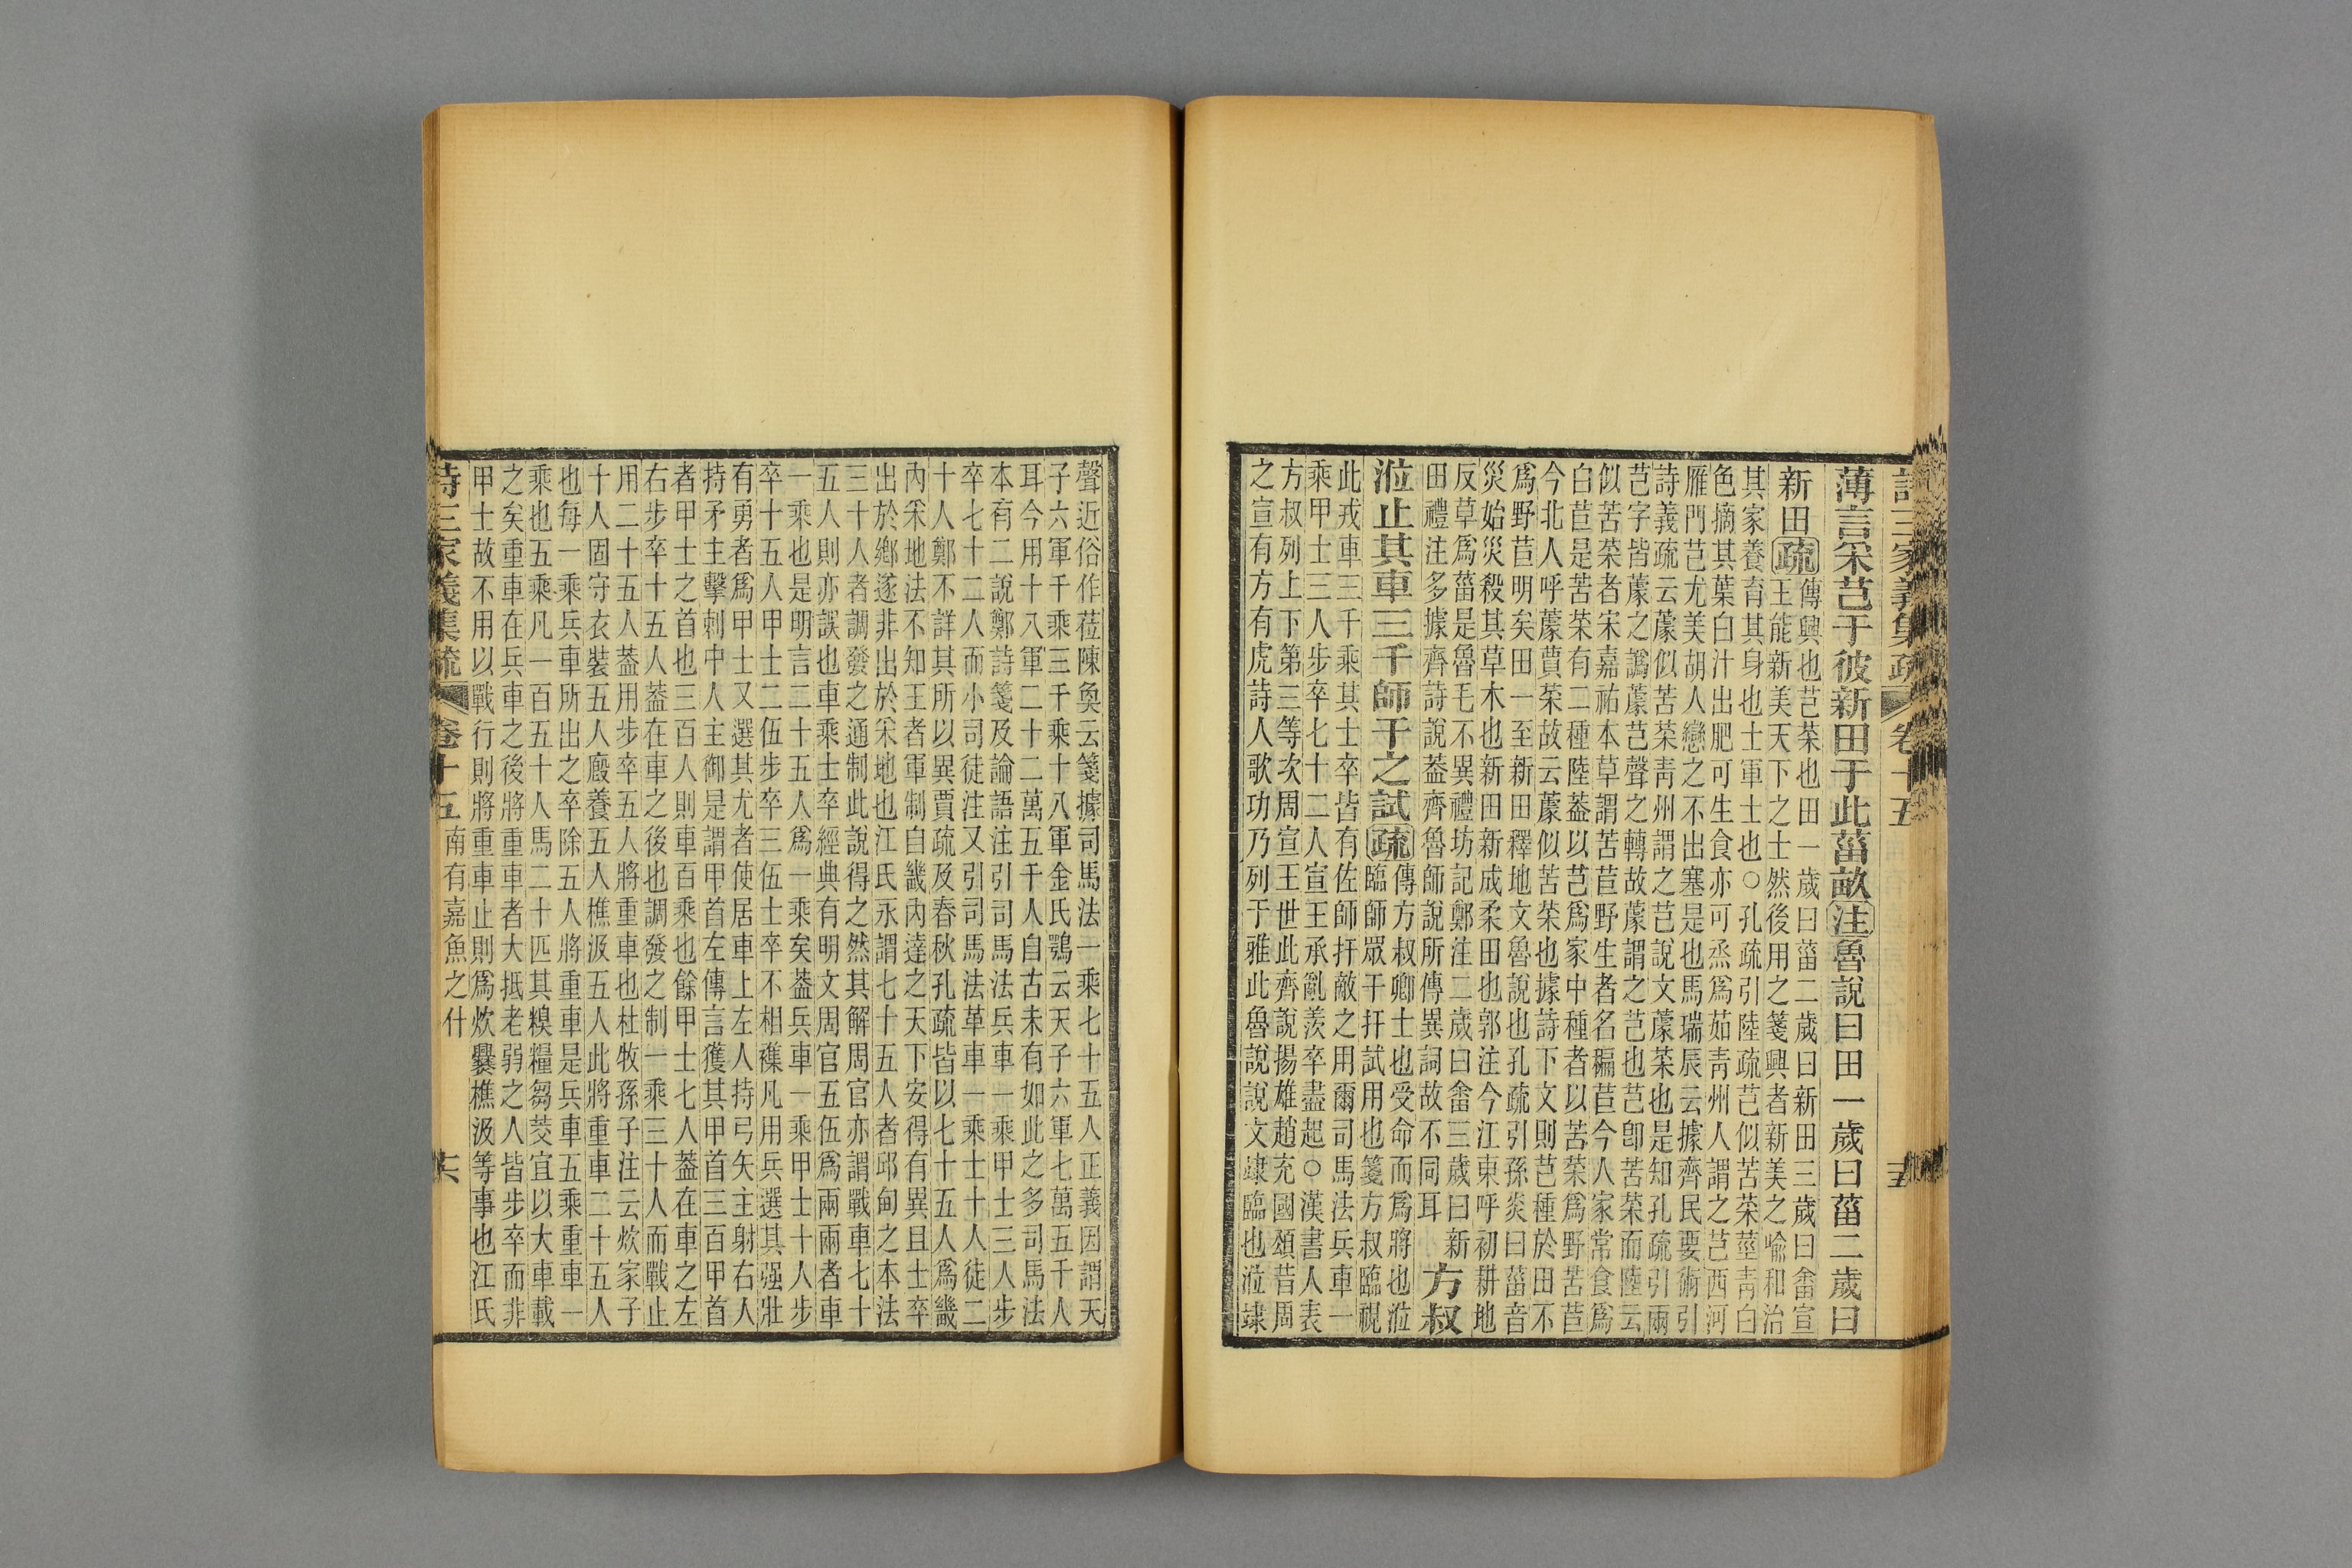 詩三家義集疏 卷十五 十五
薄言采芑于彼新田于此菑畝注魯說曰田一歲曰菑二歲曰
新田疏傳興也芑菜也田一歲曰菑二歲曰新田三歲曰畬宣
王能新美天下之士然後用之箋興者新美之喻和治
其家養育其身也士軍士也○孔疏引陸疏芑似苦菜莖靑白
色摘其葉白汁出肥可生食亦可烝爲茹靑州人謂之芑西河
雁門芑尤美胡人戀之不出塞是也馬瑞辰云據齊民要術引
詩義疏云似苦菜靑州謂之芑說文菜也是知孔疏引兩
芑字皆之譌芑聲之轉故謂之芑也芑卽苦菜而陸云
似苦菜者宋嘉祐本草謂苦苣野生者名褊苣今人家常食爲
白苣是苦菜有二種陸葢以芑爲家中種者以苦菜爲野苦苣
今北人呼蕒菜故云似苦菜也據詩下文則芑種於田不
爲野苣明矣田一至新田釋地文魯說也孔疏引孫炎曰菑音
災始災殺其草木也新田新成柔田也郭注今江東呼初耕地
反草爲菑是魯毛不異禮坊記鄭注二歲曰畬三歲曰新
田禮注多據齊詩說葢齊魯師說所傳異詞故不同耳
方叔
涖止其車三千師干之試疏傳方叔卿士也受命而爲將也涖
臨師眾干扞試用也箋方叔臨視
此戎車三千乘其士卒皆有佐師扞敵之用爾司馬法兵車一
乘甲士三人步卒七十二人宣王承亂羨卒盡起○漢書人表
方叔列上下第三等次周宣王世此齊說揚雄趙充國頌昔周
之宣有方有虎詩人歌功乃列于雅此魯說說文䇐臨也涖䇐
聲近俗作莅陳奐云箋據司馬法一乘七十五人正義因謂天
子六軍千乘三千乘十八軍金氏鶚云天子六軍七萬五千人
耳今用十八軍二十二萬五千人自古未有如此之多司馬法
本有二說鄭詩箋及論語注引司馬法兵車一乘甲士三人步
卒七十二人而小司徒注又引司馬法革車一乘士十人徒二
十人鄭不詳其所以異賈疏及春秋孔疏皆以七十五人爲畿
內采地法不知王者軍制自畿內達之天下安得有異且士卒
出於鄉遂非出於采地也江氏永謂七十五人者邱甸之本法
三十人者調發之通制此說得之然其解周官亦謂戰車七十
五人則亦誤也車乘士卒經典有明文周官五伍爲兩兩者車
一乘也是明言二十五人爲一乘矣葢兵車一乘甲士十人步
卒十五人甲士二伍步卒三伍士卒不相襍凡用兵選其强壯
有勇者爲甲士又選其尤者使居車上左人持弓矢主射右人
持矛主擊刺中人主御是謂甲首左傳言獲其甲首三百甲首
者甲士之首也三百人則車百乘也餘甲士七人葢在車之左
右步卒十五人葢在車之後也調發之制一乘三十人而戰止
用二十五人葢用步卒五人將重車也杜牧孫子注云炊家子
十人固守衣裝五人廄養五人樵汲五人此將重車二十五人
也每一乘兵車所出之卒除五人將重車是兵車五乘重車一
乘也五乘凡一百五十人馬二十匹其糗糧芻茭宜以大車載
之矣重車在兵車之後將重車者大抵老弱之人皆步卒而非
甲士故不用以戰行則將重車止則爲炊爨樵汲等事也江氏
詩三家義集疏 卷十五 南有嘉魚之什